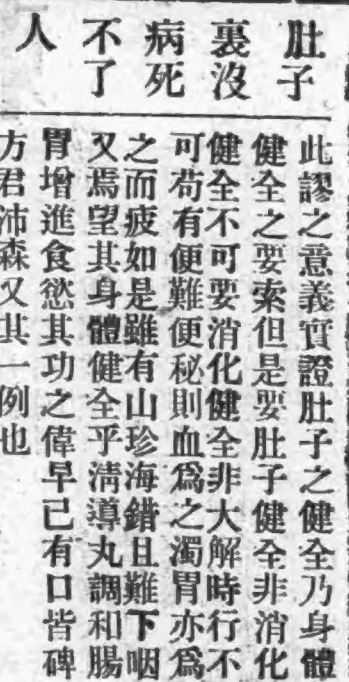 肚子
裏沒
病死
不了
人
此謬之意義實證肚子之健全乃身體
健全之要索但是要肚子健全非消化
健全不可要消化健全非大解時行不
可苟有便難便秘則血爲之濁胃亦爲
之而疲如是雖有山珍海錯且難下咽
又焉望其身體健全乎淸導丸調和腸
胃增進食慾其功之偉早已有口皆碑
方君沛森又其一例也